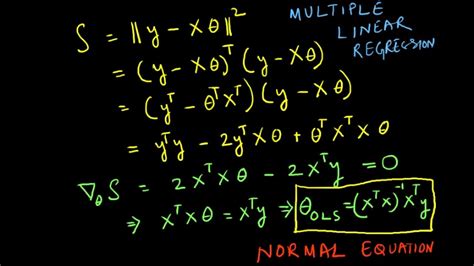 MULTIPLE
LINEAR
REGRESSION
S = ‖y − Xθ‖²
= (y − Xθ)ᵀ (y − Xθ)
= (yᵀ − θᵀXᵀ) (y − Xθ)
= yᵀy − 2yᵀXθ + θᵀXᵀXθ
∇θS = 2XᵀXθ − 2Xᵀy = 0
⇒ XᵀXθ = Xᵀy ⇒ θOLS = (XᵀX)⁻¹Xᵀy
NORMAL EQUATION